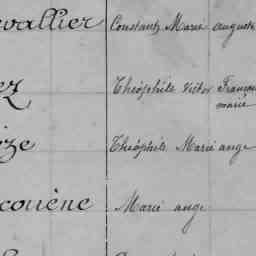 evallier Constant Marie auguste
ez Théophile Victor François
marie
ize Théophile Marie ange
couëne Marie ange